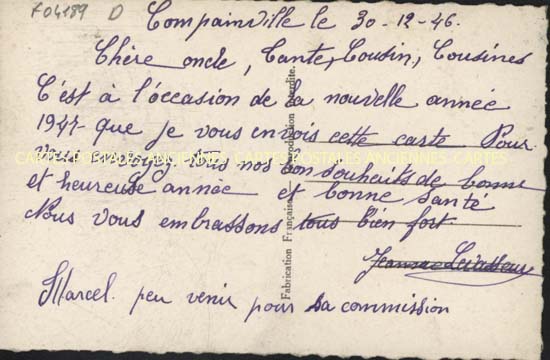 F04189 D
Compainville le 30-12-46.
Chère oncle, Tante, Cousin, Cousines
C'est à l'occasion de la nouvelle année
1947- que je vous envois cette carte Pour
vous envoyez tous nos bon souhaits de bonne
CARTES POSTALES ANCIENNES CARTES POSTALES ANCIENNES CARTES
et heureuse année et bonne santé
Nous vous embrassons tous bien fort.
Jeanne Levasseur
Marcel. peu venir pour sa commission
Fabrication Française - Reproduction Interdite.